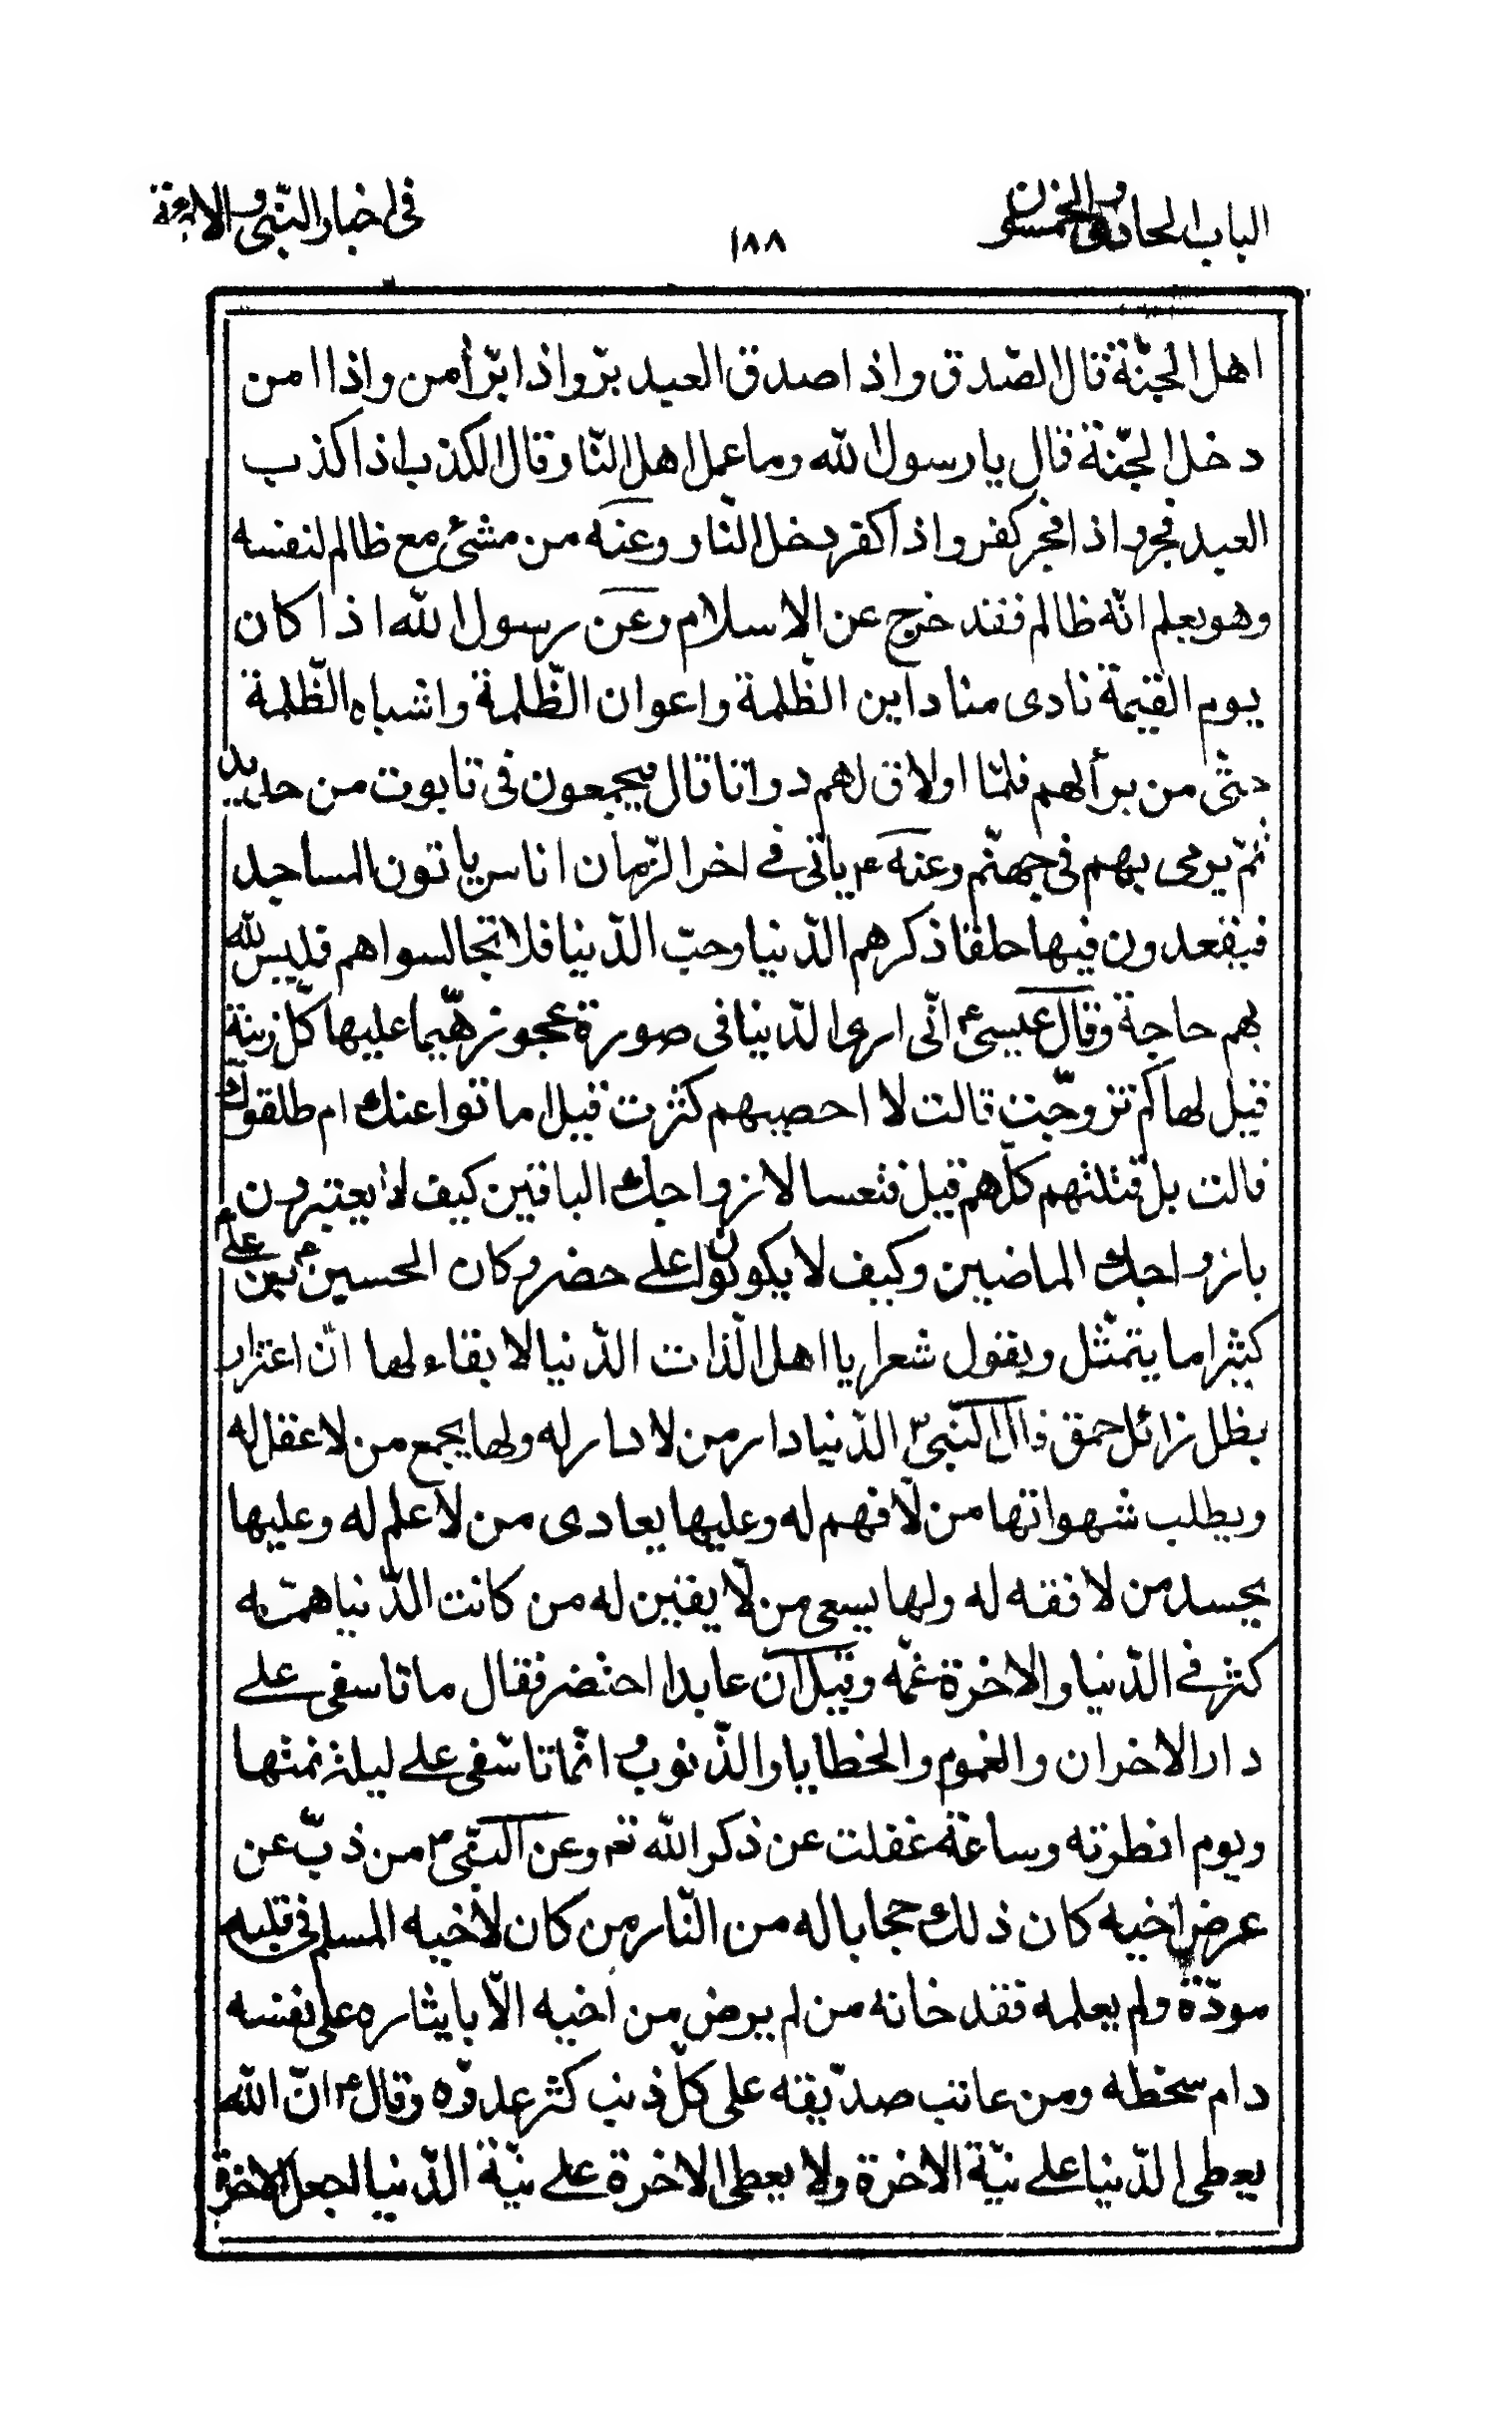 الباب الحادي والخمسون
١٨٨
في اخبار النّبي والائمة
اهل الجنّة قال الصّدق واذا صدق العبد برّ واذا برّ أمن واذا امن
دخل الجنّة قال يا رسول الله وما عمل اهل النّار قال الكذب اذا كذب
العبد فجر واذا فجر كفر واذا كفر دخل النّار وعنه من مشى مع ظالم لنفسه
وهو يعلم انّه ظالم فقد خرج عن الاسلام وعن رسول الله اذا كان
يوم القيمة نادى مناد اين الظّلمة واعوان الظّلمة واشباه الظّلمة
حتّى من برأ لهم قلما او لاق لهم دواتا قال فيجمعون في تابوت من حديد
ثمّ يرمى بهم في جهنّم وعنه ع ياتى في اخر الزّمان اناس ياتون المساجد
فيقعدون فيها حلقا ذكرهم الدّنيا وحبّ الدّنيا فلا تجالسواهم فليس لله
بهم حاجة وقال عيسى ع انّى ارى الدّنيا في صورة عجوز هيما عليها كلّ زينة
قيل لها كم تزوّجت قالت لا احصيهم كثرت قيل اماتوا عنك ام طلقوك
قالت بل قتلتهم كلّهم قيل فتعسا لازواجك الباقين كيف لا يعتبرون
بازواجك الماضين وكيف لا يكونون على حضر وكان الحسين بن على ع
كثيرا ما يتمثّل ويقول شعر يا اهل الّذات الدّنيا لا بقاء لها انّ اغترار
بظل زائل حمق قال النّبي ص الدّنيا دار من لا دار له ولها يجمع من لا عقل له
ويطلب شهواتها من لا فهم له وعليها يعادى من لا علم له وعليها
يحسد من لا فقه له ولها يسعى من لا يقين له من كانت الدّنيا همّه
كثر في الدّنيا والاخرة غمّه وقيل انّ عابدا احتضر فقال ما تاسفى على
دار الاحزان والغموم والخطايا والذّنوب وانّما تاسّفى على ليلة نمتها
ويوم افطرته وساعة غفلت عن ذكر الله تع وعن النّبى ص من ذبّ عن
عرض اخيه كان ذلك حجابا له من النّار من كان لأخيه المسلم في قلبه
مودّة ولم يعلمه فقد خانه من لم يرض من أخيه الّا بايثاره على نفسه
دام سخطه ومن عاتب صديقه على كلّ ذنب كثر عدوّه وقال ع انّ الله
يعطى الدّنيا على نيّة الاخرة ولا يعطى الاخرة على نيّة الدّنيا اجعل الاخرة